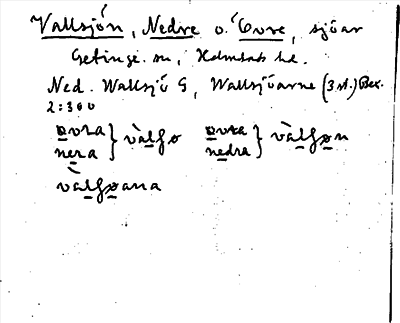 Vallsjön, Nedre o. Övre, sjöar
Getinge sn, Halmstads hd.
Ned. Wallsjö G, Wallsjöarne (3 st.) Bex.
2:300
ovra } vàlʃo ovra } vàlʃon
nera nedra
vàlʃoana